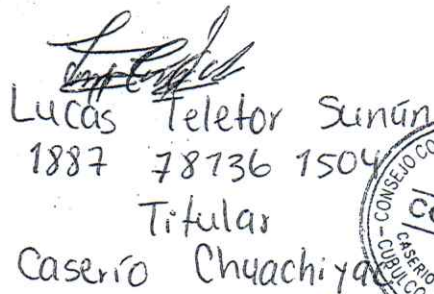 Lucas Teletor Sunún
1887 78736 1504
Titular
Caserío Chuachiyac
CONSEJO CO
CO
CASERIO
CUBULCO